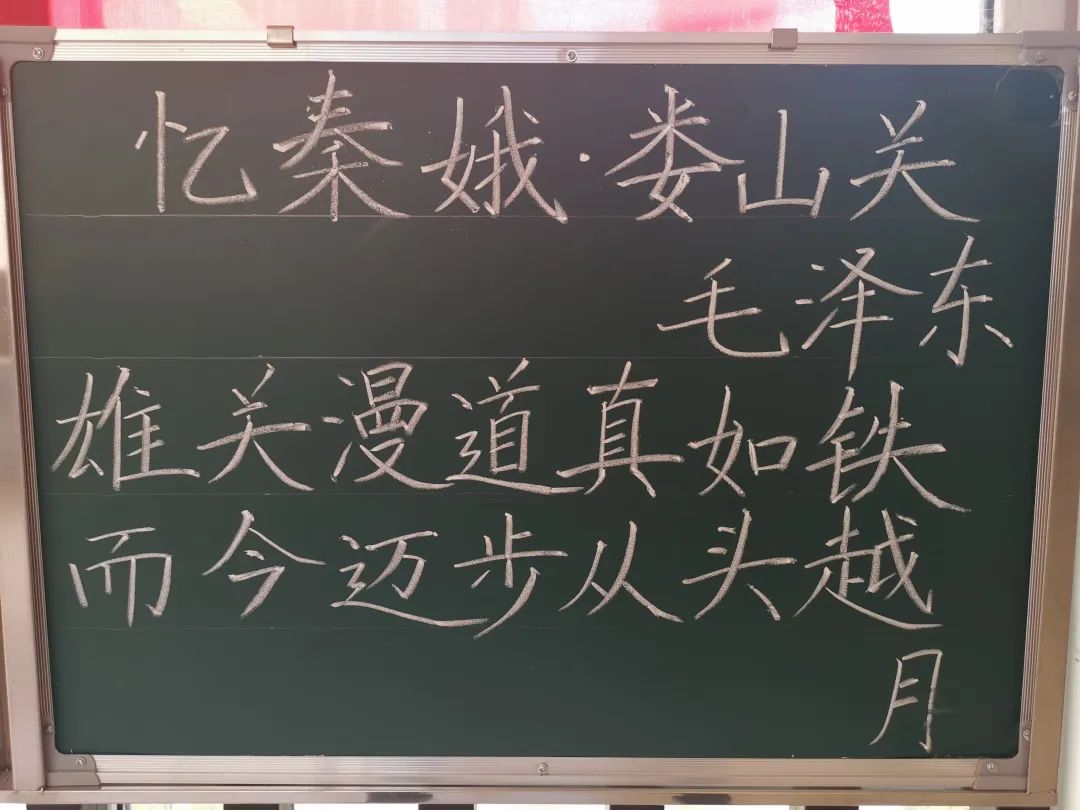 忆秦娥·娄山关
毛泽东
雄关漫道真如铁
而今迈步从头越
月